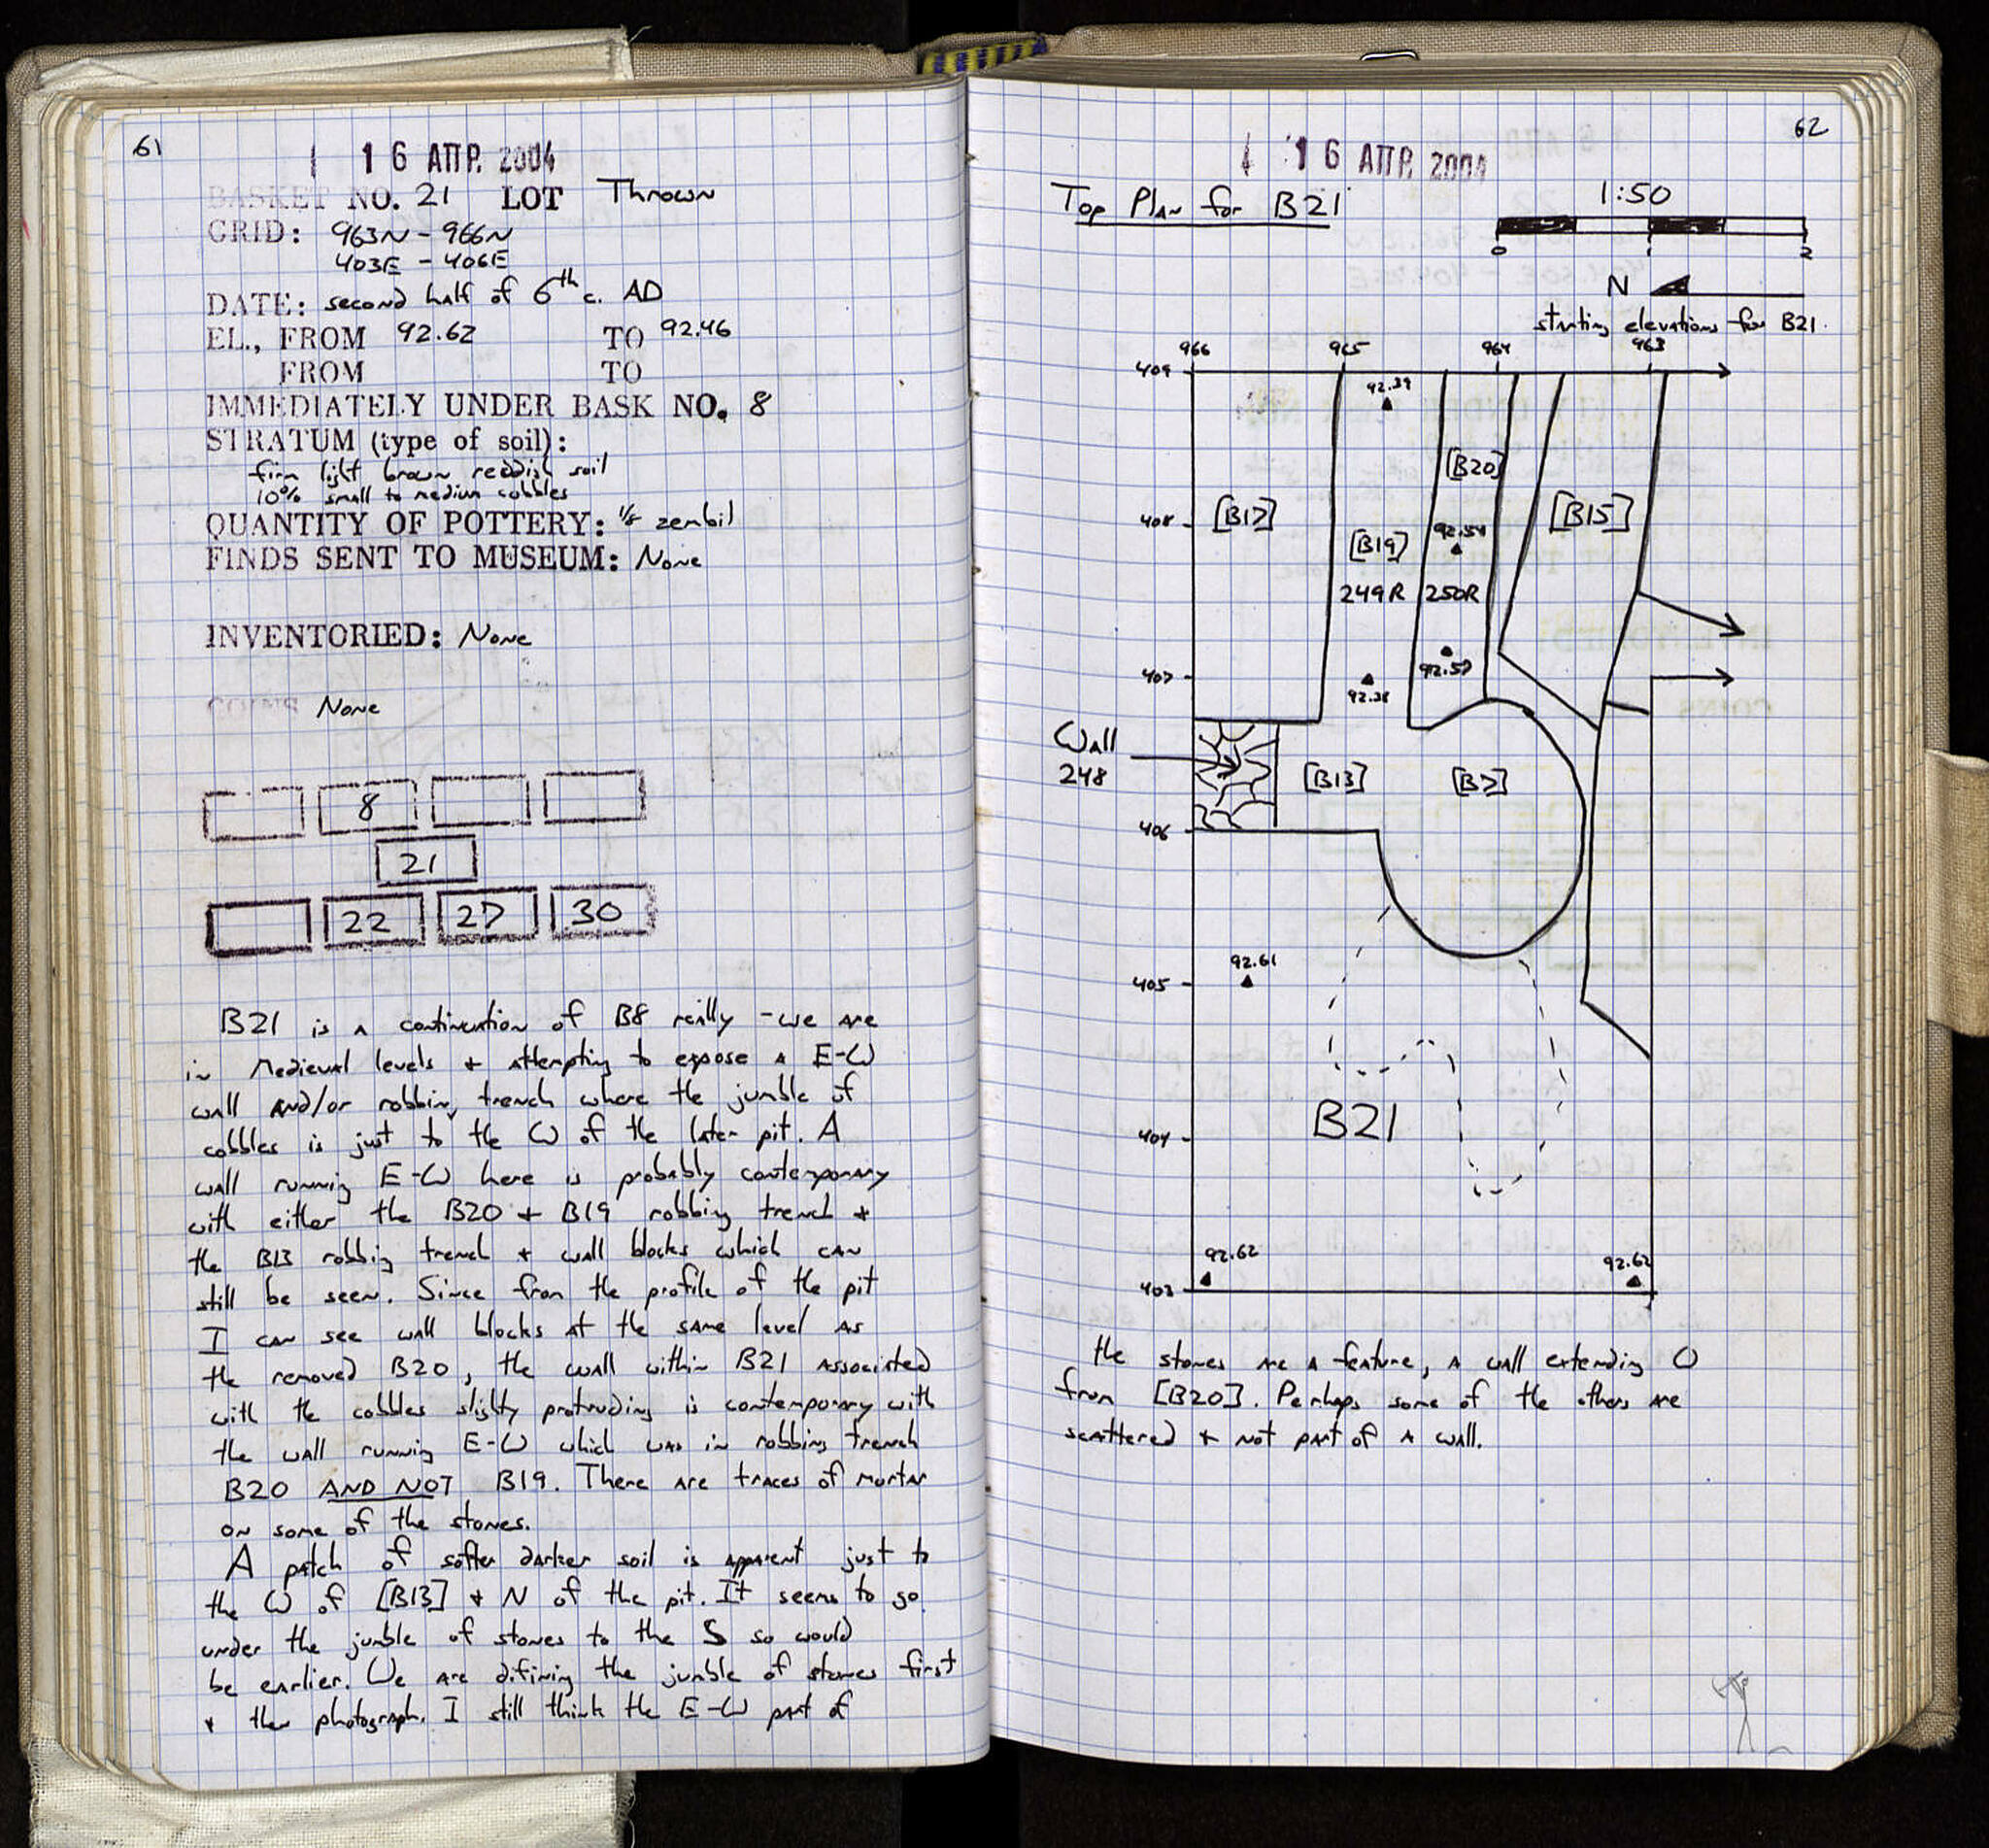 61
16 ΑΠΡ. 2004
BASKET NO. 21 LOT Thrown
GRID: 963N - 966N
403E - 406E
DATE: second half of 6th c. AD
EL., FROM 92.62 TO 92.46
FROM TO
IMMEDIATELY UNDER BASK NO. 8
STRATUM (type of soil):
firm light brown reddish soil
10% small to medium cobbles
QUANTITY OF POTTERY: 1/8 zembil
FINDS SENT TO MUSEUM: None
INVENTORIED: None
COINS None
8
21
22 27 30
B21 is a continuation of B8 really - we are
in Medieval levels + attempting to expose a E-W
wall and/or robbing trench where the jumble of
cobbles is just to the W of the later pit. A
wall running E-W here is probably contemporary
with either the B20 + B19 robbing trench +
the B13 robbing trench + wall blocks which can
still be seen. Since from the profile of the pit
I can see wall blocks at the same level as
the removed B20, the wall within B21 associated
with the cobbles slighty protruding is contemporary with
the wall running E-W which was in robbing trench
B20 AND NOT B19. There are traces of mortar
on some of the stones.
A patch of softer darker soil is apparent just to
the W of [B13] + N of the pit. It seems to go
under the jumble of stones to the S so would
be earlier. We are difining the jumble of stones first
+ then photograph. I still think the E-W part of
62
16 ΑΠΡ. 2004
Top Plan for B21
1:50
0 1 2
N
starting elevations for B21.
966 965 964 963
409
92.39
[B20]
408
[B17]
[B15]
92.54
[B19]
249R 250R
407
92.57
92.38
Wall
248
[B13] [B7]
406
92.61
405
B21
404
92.62
92.62
403
the stones are a feature, a wall extending W
from [B20]. Perhaps some of the others are
scattered + not part of a wall.